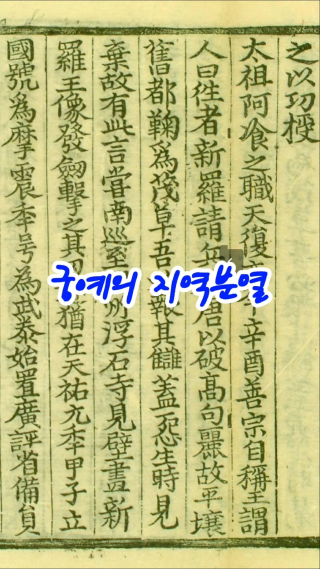 之以功授
太祖阿飡之職天復辛酉善宗自稱王謂
人曰徃者新羅請唐以破高句麗故平壤
舊都鞠爲茂草吾報其讎盖怨生時見
棄故有此言嘗南巡至州浮石寺見壁畫新
羅王像發劒擊之其猶在天祐元年甲子立
國號爲摩震年号爲武泰始置廣評省備貟
궁예의 지역분열